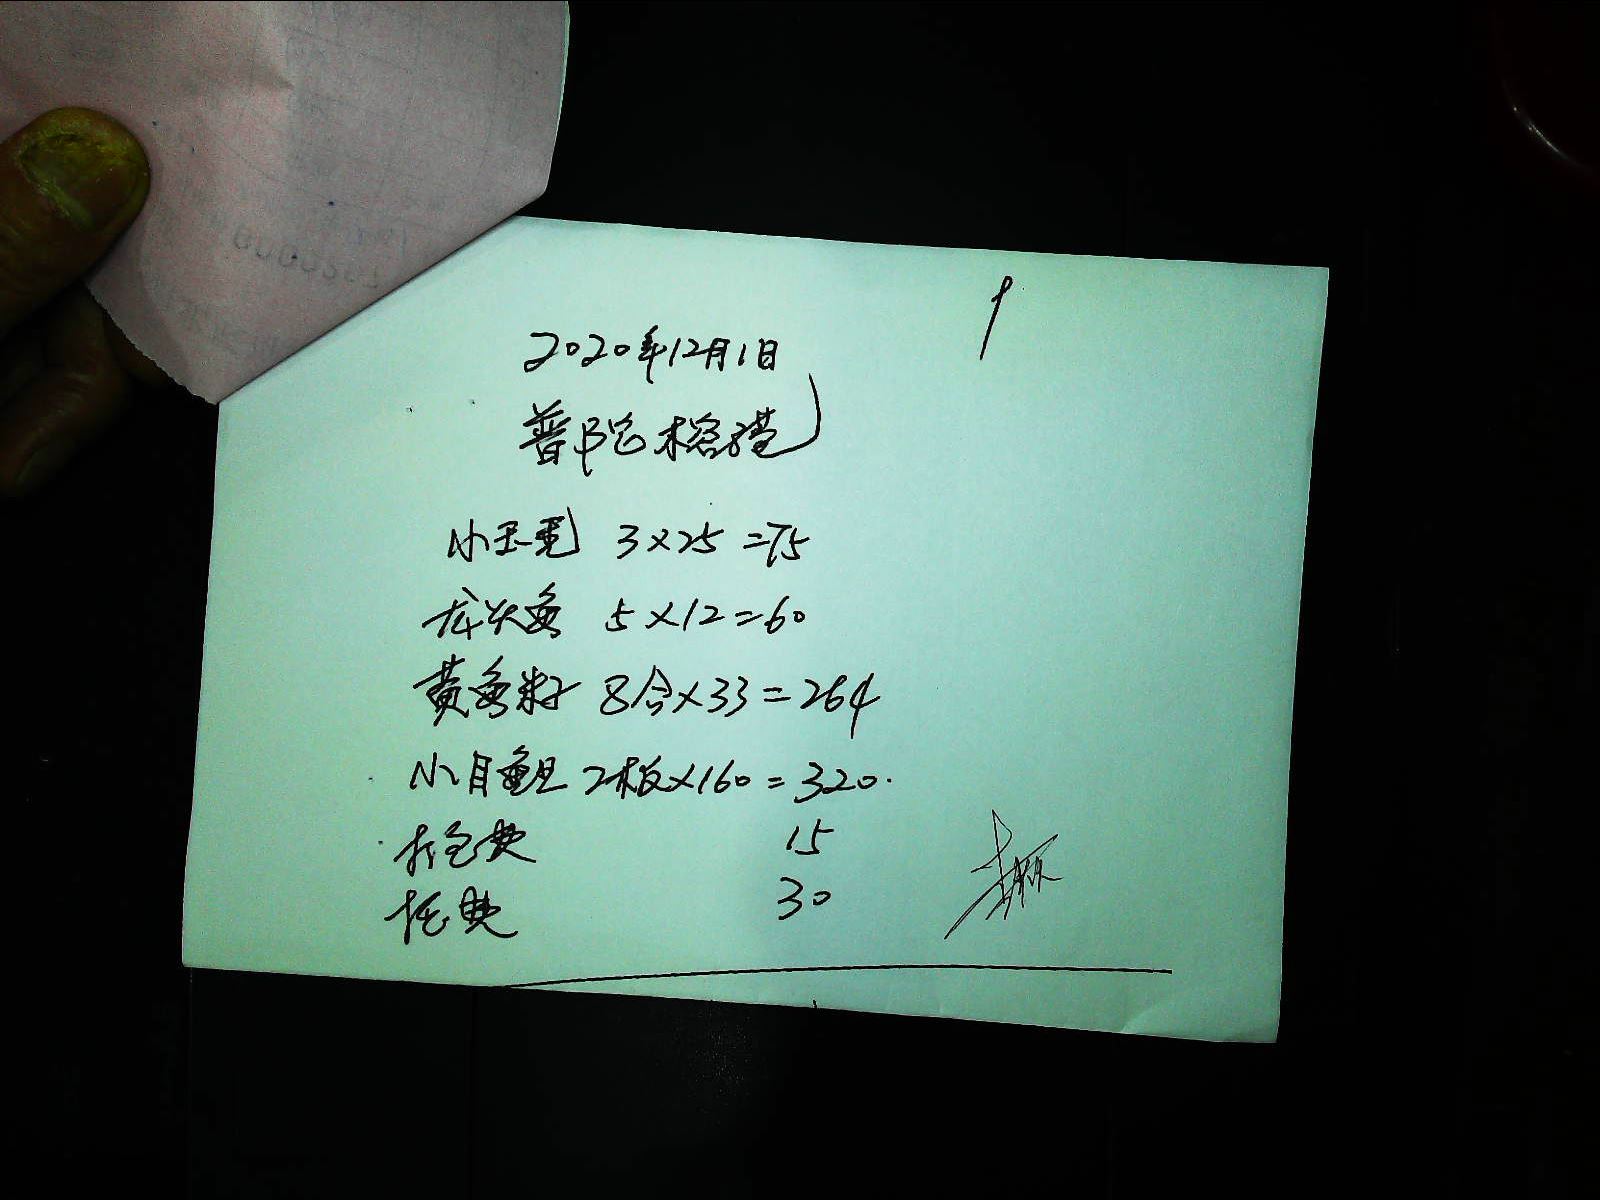 2020年12月1日
普陀榕港
小玉秃 3×25=75
龙头鱼 5×12=60
黄鱼籽 8合×33=264
小目鱼旦 2板×160=320
打包费 15
托费 30